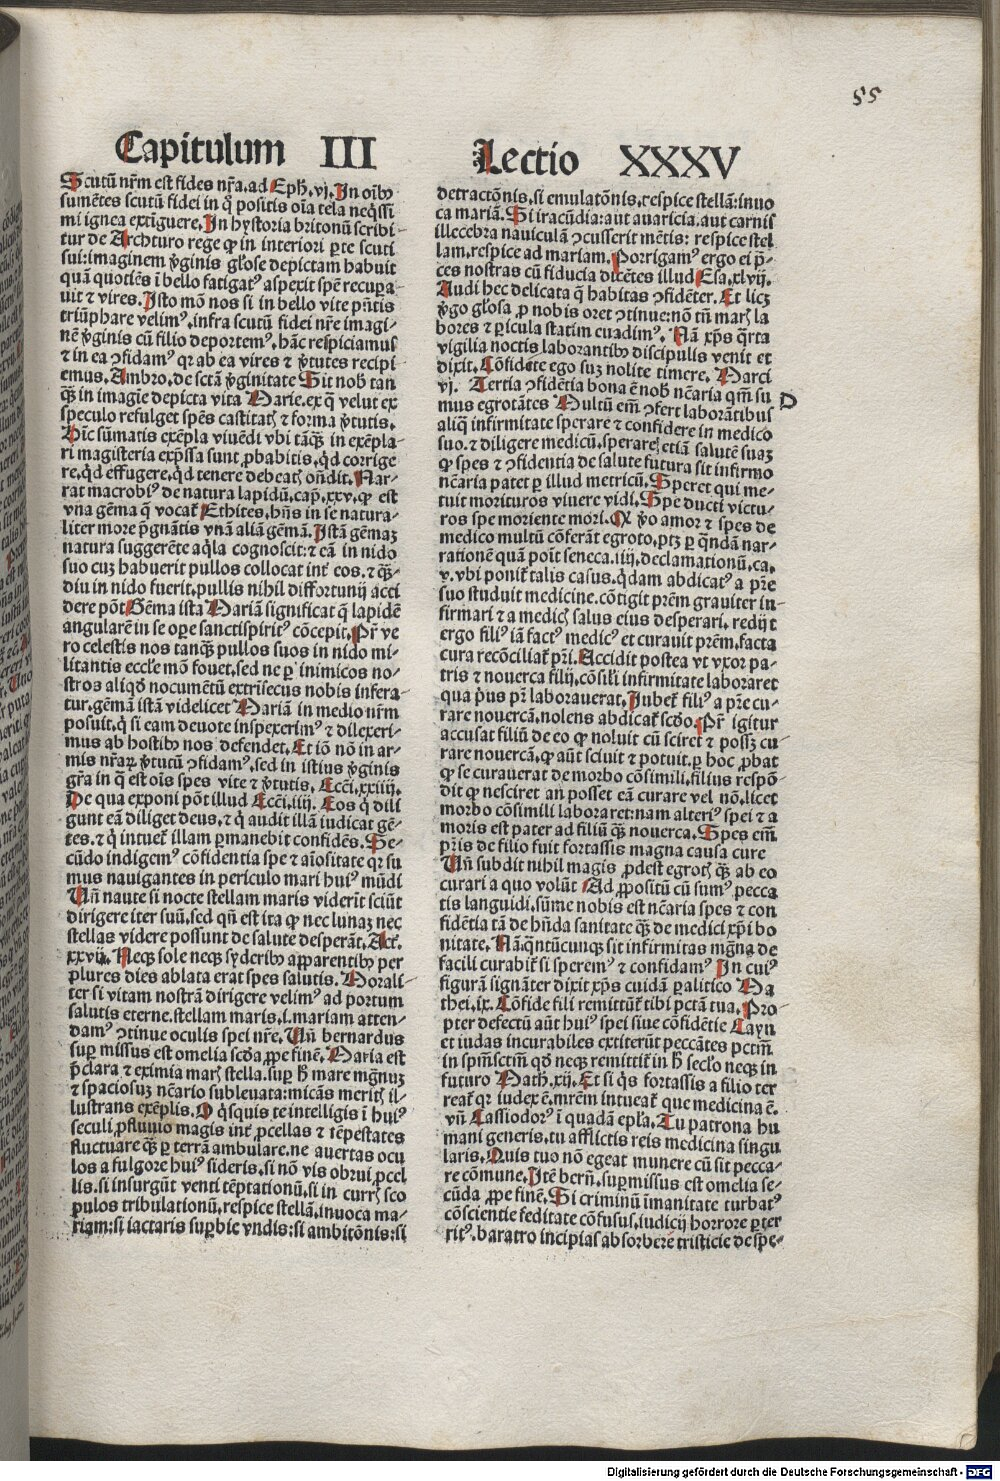 55
Capitulum III
Scutū nr̄m est fides nr̄a. ad Eph̄. vj. In oībꝰ
sumētes scutū fidei in q̄ positis oīa tela neq̄ssi
mi ignea extīguere. In hystoria britonū scribi-
tur de Archturo rege ꝙ in interiori ꝑte scuti
sui: imaginem ꝟginis gl̄ose depictam habuit
quā quotiēs ī bello fatigatꝰ aspexit spē recupa-
uit ⁊ vires. Isto mō nos si in bello vite p̄ntis
triūphare velimꝰ, infra scutū fidei nr̄e imagi-
nē ꝟginis cū filio deportemꝰ. hāc respiciamus
⁊ in ea ꝯfidamꝰ qꝛ ab ea vires ⁊ ꝟtutes recipi-
emus. Ambro. de sctā ꝟginitate Sit nob̄ tan
qꝫ in imagīe depicta vita Marie. ex q̄ velut ex
speculo refulget spēs castitatꝭ ⁊ forma ꝟtutis.
Hīc sūmatis exēpla viuēdi vbi tāqꝫ in exēpla-
ri magisteria exp̄ssa sunt ꝓbabitis. qͥd corrige
re. qͥd effugere. qͥd tenere debeatꝭ oñdit. Nar-
rat macrobiꝰ de natura lapidū. cap̄. xxv. ꝙ est
vna gēma q̄ vocat᷑ Ethites. hn̄s in se natura-
liter more p̄gnātis vnā aliā gēmā. Istā gēmaꝫ
natura suggerēte aq̄la cognoscit: ⁊ eā in nido
suo cuꝫ habuerit pullos collocat int̄ eos. ⁊ qꝫ-
diu in nido fuerit. pullis nihil diffortunij acci
dere pōt Gēma ista Mariā significat q̄ lapidē
angularē in se oꝑe sanctispiritꝰ cōcepit. Pr̄ ve
ro celestis nos tanqꝫ pullos suos in nido mi-
litantis eccl̄ie mō fouet. sed ne ꝑ inimicos no-
stros aliqd̄ nocumētū extrīsecus nobis infera-
tur. gēmā istā videlicet Mariā in medio nr̄m
posuit. q̄ si eam deuote inspexerimꝰ ⁊ dilexeri-
mus ab hostibꝰ nos defendet. Et iō nō in ar-
mis nr̄aꝝ ꝟtutū ꝯfidamꝰ. sed in istius ꝟginis
gr̄a in q̄ est oīs spes vite ⁊ ꝟtutis. Ecci. xxiiij.
De qua exponi pōt illud Ecci. iiij. Eos q̄ dili
gunt eā diliget deus. ⁊ q̄ audit illā iudicat gē-
tes. ⁊ q̄ intuet᷑ illam ꝑmanebit confidēs. Se-
cūdo indigemꝰ cōfidentia spe ⁊ aīositate qꝛ su
mus nauigantes in periculo mari huiꝰ mūdi
Un̄ naute si nocte stellam maris viderīt sciūt
dirigere iter suū. sed qn̄ est ita ꝙ nec lunaꝫ nec
stellas videre possunt de salute desperāt. Act̄.
xxvij. Neqꝫ sole neqꝫ syderibꝰ apparentibꝰ per
plures dies ablata erat spes salutis. Morali-
ter si vitam nostrā dirigere velimꝰ ad portum
salutis eterne. stellam maris. i. mariam atten-
damꝰ ꝯtinue oculis spei nr̄e. Un̄ bernardus
suꝑ missus est omelia scd̄a ꝓpe finē. Maria est
p̄clara ⁊ eximia marꝭ stella. suꝑ h̄ mare mg̃nuꝫ
⁊ spaciosuꝫ nc̄ario subleuata: micās meritꝭ il-
lustrans exēplis. O qͥsquis te intelligis ī huiꝰ
seculi ꝓfluuio magis int̄ ꝓcellas ⁊ tēpestates
fluctuare qꝫ ꝑ terrā ambulare. ne auertas ocu
los a fulgore huiꝰ sideris. si nō vis obrui ꝓcel
lis. si insurgūt venti tēptationū. si in currꝭ sco
pulos tribulationū. respice stellā. inuoca ma-
riam: si iactaris supbie vndis: si ambitōnis: si
Lectio XXXV
detractōnis. si emulatōnis. respice stellā: inuo
ca mariā. Si iracūdia: aut auaricia. aut carnis
illecebra nauiculā ꝯcusserit mētis: respice stel
lam. respice ad mariam. Porrigamꝰ ergo ei p̄-
ces nostras cū fiducia dicētes illud Esa. xlvij.
Audi hec delicata q̄ habitas ꝯfidēter. Et licꝫ
ꝟgo gl̄osa ꝓ nobis oret ꝯtinue: nō tn̄ marꝭ la
bores ⁊ ꝑicula statim euadimꝰ. Nā xp̄s qͣrta
vigilia noctis laborantibꝰ discipulis venit et
dixit. Cōfidete ego suꝫ nolite timere. Marci
vj. Tertia ꝯfidētia bona ē nob̄ nc̄aria qm̄ su
D
mus egrotātes Multū em̄ ꝯfert laborātibus
aliq̄ infirmitate sperare ⁊ confidere in medico
suo. ⁊ diligere medicū. sperareqꝫ etiā salutē suaꝫ
ꝙ spes ⁊ ꝯfidentia de salute futura sit infirmo
nc̄aria patet ꝑ illud metricū. Speret qui me-
tuit morituros viuere vidi. Spe ducti victu-
ros spe moriente mori. Qꝫ ꝟo amor ⁊ spes de
medico multū cōferāt egroto. ptꝫ ꝑ qͣndā nar-
rationē quā poīt seneca. iiij. declamationū. ca.
v. vbi ponit᷑ talis casus. qͥdam abdicatꝰ a pr̄e
suo studuit medicine. cōtigit prēm grauiter in-
firmari ⁊ a medicꝭ salus eius desperari. redijt
ergo filiꝰ iā factꝰ medicꝰ et curauit prēm. facta
cura recōciliat᷑ pr̄i. Accidit postea vt vxor pa-
tris ⁊ nouerca filij. cōsili infirmitate laboraret
qua p̄us pr̄ laborauerat. Iubet᷑ filiꝰ a pr̄e cu-
rare nouercā. nolens abdicat᷑ scd̄o. Pr̄ igitur
accusat filiū de eo ꝙ noluit cū sciret ⁊ possꝫ cu-
rare nouercā. ꝙ aūt sciuit ⁊ potuit. ꝑ hoc ꝓbat
ꝙ se curauerat de morbo cōsimili. filius respō-
dit ꝙ nesciret an posset eā curare vel nō. licet
morbo cōsimili laboraret: nam alteriꝰ spei ⁊ a
moris est pater ad filiū qꝫ nouerca. Spes em̄
pr̄is de filio fuit fortassis magna causa cure
Un̄ subdit nihil magis ꝓdest egrotꝭ qꝫ ab eo
curari a quo volūt Ad ꝓpositū cū sumꝰ pecca
tis languidi. sūme nobis est nc̄aria spes ⁊ con
fidētia tā de hn̄da sanitate qꝫ de medici xp̄i bo
nitate. Nā qͣntūcunqꝫ sit infirmitas mg̃na de
facili curabit᷑ si speremꝰ ⁊ confidamꝰ In cuiꝰ
figurā signāter dixit xp̄s cuidā ꝑalitico Ma
thei. ix. Cōfide fili remittūt᷑ tibi pctā tua. Pro
pter defectū aūt huiꝰ spei siue cōfidētie Cayn
et iudas incurabiles extiterūt peccātes pctm̄
in spm̄sctm̄ qd̄ neqꝫ remittit᷑ in h̄ seclo neqꝫ in
futuro Math̄. xij. Et si qͥs fortassis a filio ter
reat᷑ qꝛ iudex ē. mrēm intueat᷑ que medicina ē.
vn̄ Cassiodorꝰ ī quadā epl̄a. Tu patrona hu
mani generis. tu afflictis reis medicina singu
laris. Quis tuo nō egeat munere cū sit pecca-
re cōmune. Itē bern̄. suꝑ missus est omelia se-
cūda ꝓpe finē. Si criminū īmanitate turbatꝰ
cōscientie feditate cōfusus. iudicij horrore ꝑter
ritꝰ. baratro incipias absorbere tristicie despe-
Digitalisierung gefördert durch die Deutsche Forschungsgemeinschaft - DFG